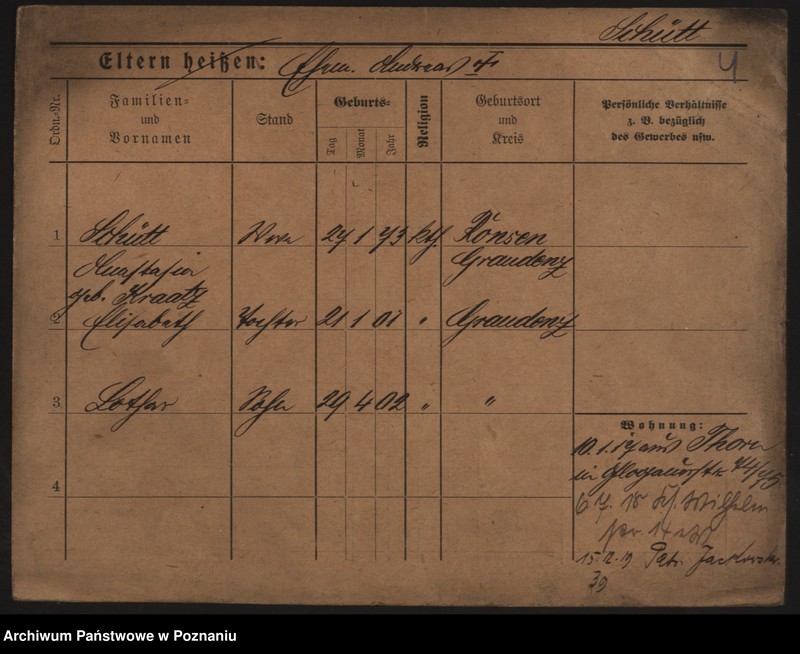 Schütt
Eltern heißen: Ehem. Andreas †
4
Ordn.-Nr.
Familien-
und
Vornamen
Stand
Geburts-
Tag
Monat
Jahr
Religion
Geburtsort
und
Kreis
Persönliche Verhältnisse
z. B. bezüglich
des Gewerbes usw.
1 Schütt Wwe 27 1 73 kth Rönsen
Anastasia Graudenz
geb. Kraatz
2 Elisabeth Tochter 21 1 01 " Graudenz
3 Lothar Sohn 29 4 02 " "
4
Wohnung:
10.1.17 aus Thorn
in Glogauerstr. 74/75
6 7. 18 Wilhelm
15.12.19 Patr. Jackowsk.
39
Archiwum Państwowe w Poznaniu